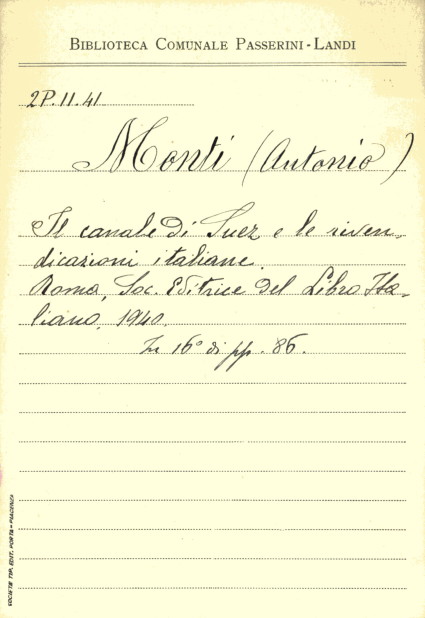 BIBLIOTECA COMUNALE PASSERINI-LANDI
2P.11.41
Monti (Antonio)
Il canale di Suez e le riven-
dicazioni italiane.
Roma, Soc. Editrice del Libro Ita-
liano, 1940.
In 16° di pp. 86.
SOCIETÀ TIP. EDIT. PORTA - PIACENZA